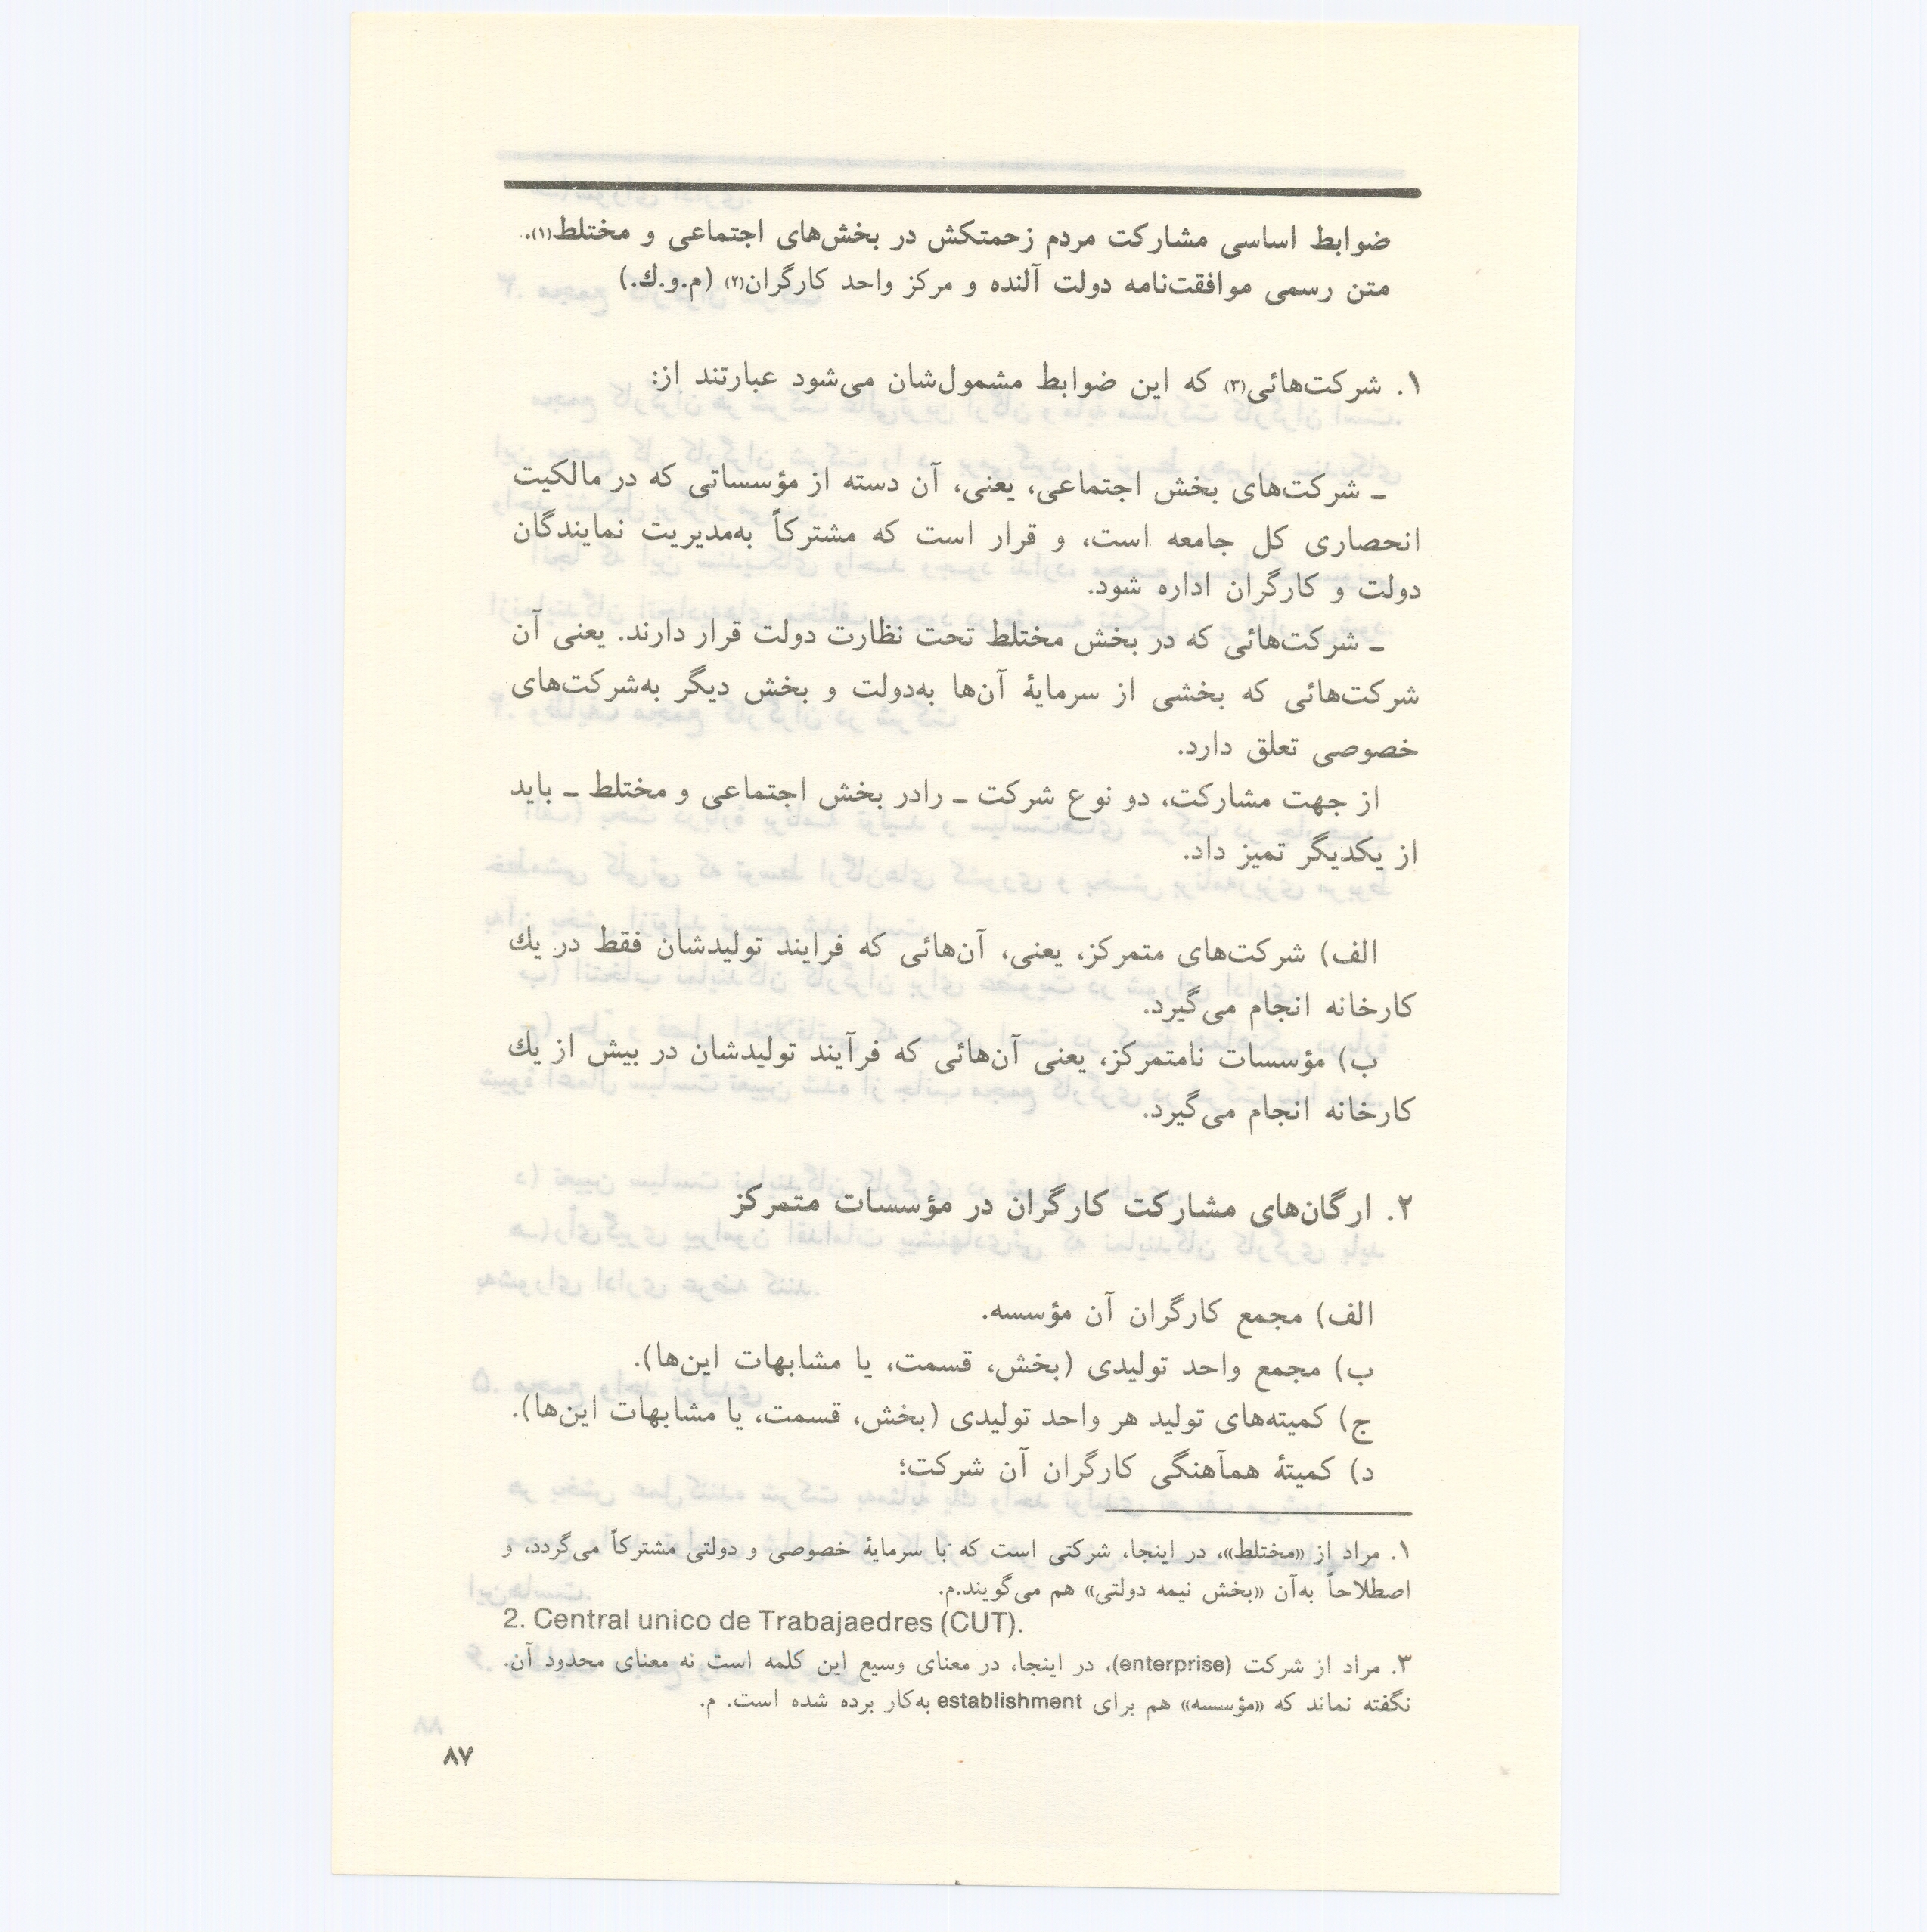 ضوابط اساسی مشارکت مردم زحمتکش در بخش‌های اجتماعی و مختلط(۱).
متن رسمی موافقت‌نامه دولت آلنده و مرکز واحد کارگران(۲) (م.و.ك.)
۱. شرکت‌هائی(۳) که این ضوابط مشمول‌شان می‌شود عبارتند از:
ـ شرکت‌های بخش اجتماعی، یعنی، آن دسته از مؤسساتی که در مالکیت
انحصاری کل جامعه است، و قرار است که مشترکاً به‌مدیریت نمایندگان
دولت و کارگران اداره شود.
ـ شرکت‌هائی که در بخش مختلط تحت نظارت دولت قرار دارند. یعنی آن
شرکت‌هائی که بخشی از سرمایهٔ آن‌ها به‌دولت و بخش دیگر به‌شرکت‌های
خصوصی تعلق دارد.
از جهت مشارکت، دو نوع شرکت ـ رادر بخش اجتماعی و مختلط ـ باید
از یکدیگر تمیز داد.
الف) شرکت‌های متمرکز، یعنی، آن‌هائی که فرایند تولیدشان فقط در یك
کارخانه انجام می‌گیرد.
ب) مؤسسات نامتمرکز، یعنی آن‌هائی که فرآیند تولیدشان در بیش از یك
کارخانه انجام می‌گیرد.
۲. ارگان‌های مشارکت کارگران در مؤسسات متمرکز
الف) مجمع کارگران آن مؤسسه.
ب) مجمع واحد تولیدی (بخش، قسمت، یا مشابهات این‌ها).
ج) کمیته‌های تولید هر واحد تولیدی (بخش، قسمت، یا مشابهات این‌ها).
د) کمیتهٔ همآهنگی کارگران آن شرکت؛
۱. مراد از «مختلط»، در اینجا، شرکتی است که با سرمایهٔ خصوصی و دولتی مشترکاً می‌گردد، و
اصطلاحاً به‌آن «بخش نیمه دولتی» هم می‌گویند.م.
2. Central unico de Trabajaedres (CUT).
۳. مراد از شرکت (enterprise)، در اینجا، در معنای وسیع این کلمه است نه معنای محدود آن.
نگفته نماند که «مؤسسه» هم برای establishment به‌کار برده شده است. م.
۸۷